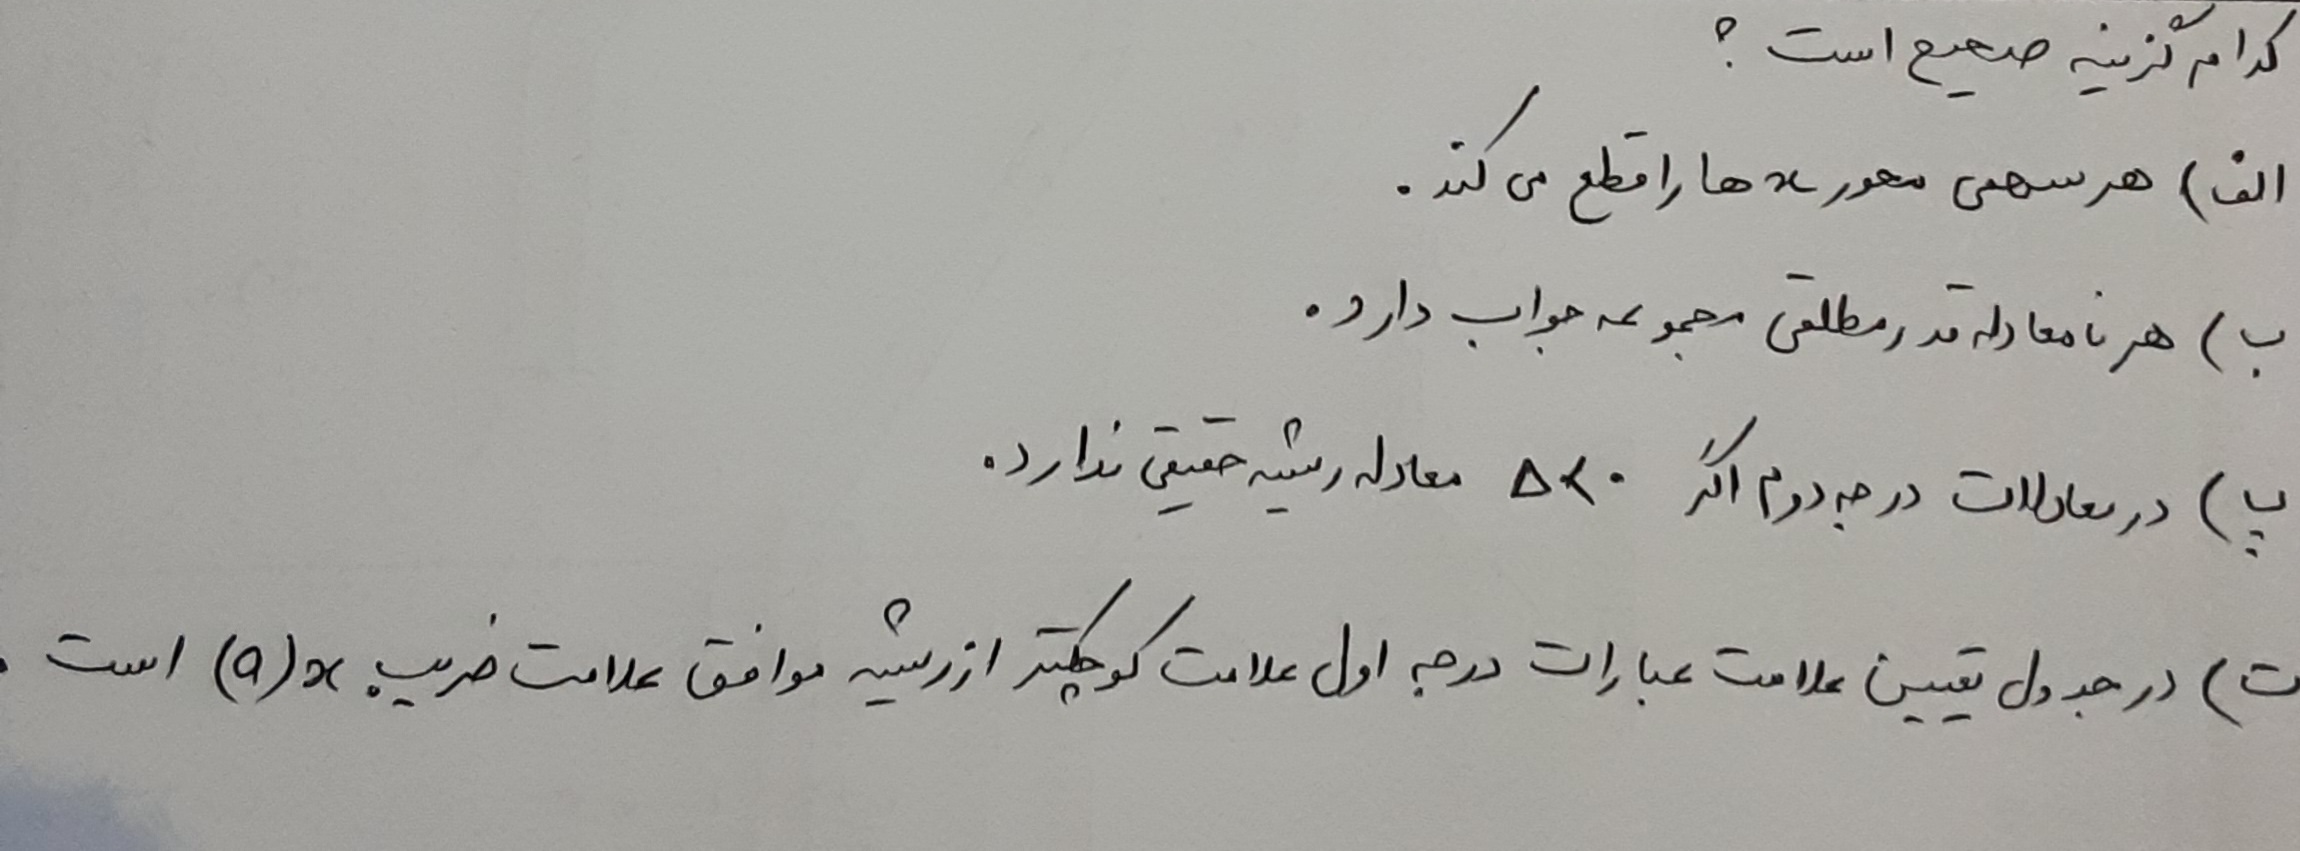 کدام گزینه صحیح است ؟
الف) هر سهمی محور x ها را قطع می کند .
ب) هر نامعادله قدرمطلقی مجموعه جواب دارد .
پ) در معادلات درجه دوم اگر Δ<۰ معادله ریشه حقیقی ندارد .
ت) در جدول تعیین علامت عبارات درجه اول علامت کوچکتر از ریشه موافق علامت ضریب x (a) است .